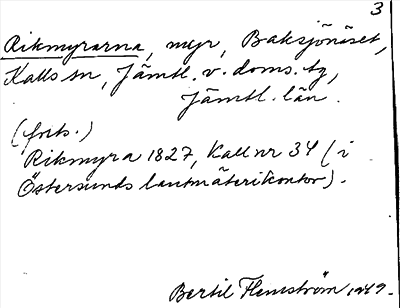 3
Rikmyrarna, myr, Baksjönäset,
Kalls sn, Jämtl. v. doms. tg,
Jämtl. län.
(forts.)
Rikmyra 1827, Kall nr 34 (i
Östersunds lantmäterikontor).
Bertil Flemström 1949.